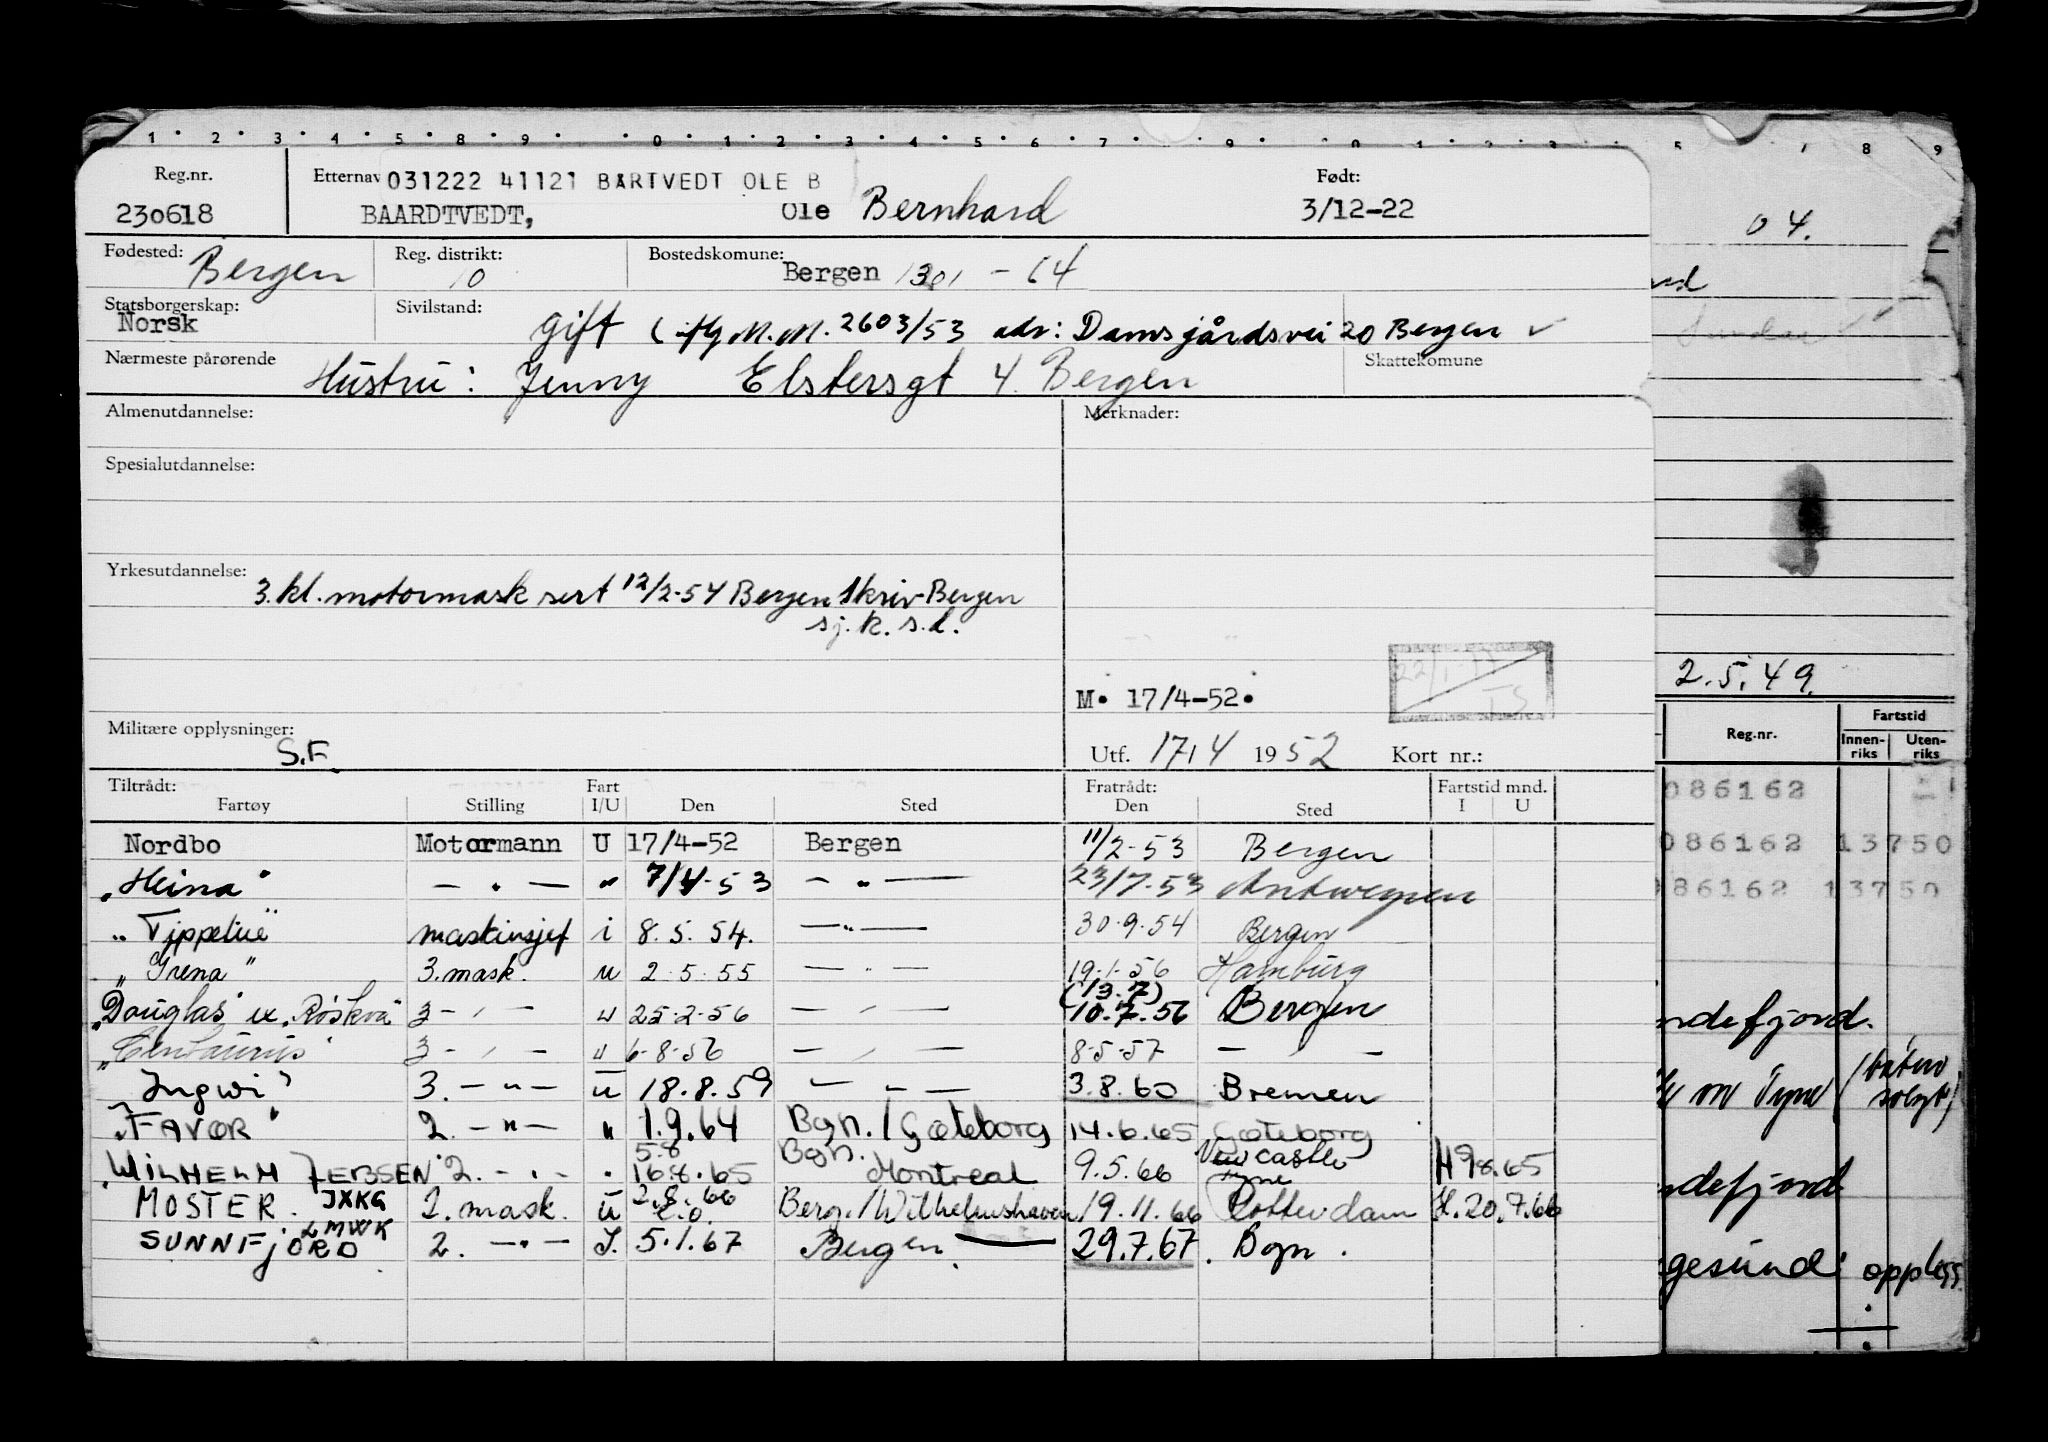 1 2 3 4 5 8 9 0 1 2 3 4 5 6 7 9 0 1 2 3 5 7 8 9
Reg.nr. Etternav 031222 41121 BÅRTVEDT OLE B Født:
230618 BAARDTVEDT, Ole Bernhard 3/12-22
04.
Fødested: Bergen Reg. distrikt: 10 Bostedskomune: Bergen 1301 - 64
Statsborgerskap: Norsk Sivilstand: gift ( iflg M.M. 2603/53 adr: Damsgårdsvei 20 Bergen ✓
Nærmeste pårørende Hustru: Jenny Elstersgt 4. Bergen Skattekomune
Almenutdannelse: Merknader:
Spesialutdannelse:
Yrkesutdannelse: 3. kl. motormask sert 12/2-54 Bergen skriv Bergen
sj. k. s.d.
22/1
TS
M. 17/4-52.
2.5.49.
Militære opplysninger: S.F. Utf. 17/4 1952 Kort nr.:
Reg.nr. Fartstid
Innen-riks Uten-riks
Tiltrådt: Fart Fratrådt: Fartstid mnd.
Fartøy Stilling I/U Den Sted Den Sted I U
086162
Nordbo Motormann U 17/4-52 Bergen 11/2-53 Bergen
086162 13750
"Heina" — " — " 7/4-53 — " — 23/7-53 Antwerpen
086162 13750
" maskinsjef i 8.5.54. — " — 30.9.54 Bergen
"Irena" 3.mask. u 2.5.55 — " — 19.1.56 Hamburg
(13.7)
"Douglas" ex. "Röskva" 3 — " — u 25.2.56 — " — 10.7.56 Bergen
ndefjord.
"Centaurus" 3 — " — u 6-8-56 — " — 8-5-57 — " —
"Ingwi" 3. — " — u 18.8.59 — " — 3.8.60 Bremen
on Tyne (båten solgt)
"FAVOR" 2. — " — " 1.9.64 Bgn. / Gøteborg 14.6.65 Gøteborg
5.8 Bgn. New castle
"WILHELM JEBSEN" 2. — " — " 16.8.65 Montreal 9.5.66 Tyne H 98.65
ndefjord
JXKG 2.8.66
MOSTER. 2. mask. u Berg./Wilhelmshaven 19.11.66 Rotterdam H. 20.7.66
LMWK
SUNNFjORD 2. — " — I. 5.1.67 Bergen. 29.7.67. Bgn.
gesund oppløss.